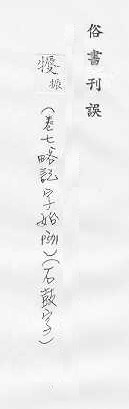 俗書刊誤
(卷七、略記字始)(石鼓字)